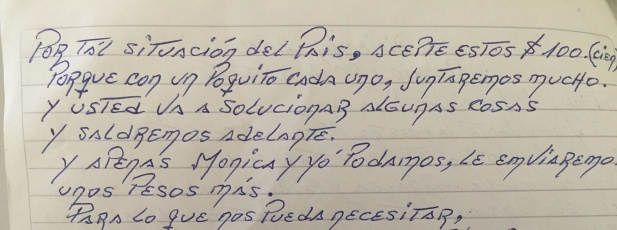 POR TAL SITUACIÓN del PAIS, ACEPTE ESTOS $100.(cien)
PORQUE CON UN POQUITO CADA UNO, JUNTAREMOS MUCHO.
Y USTED VA A SOLUCIONAR ALGUNAS COSAS
Y SALDREMOS ADELANTE.
Y APENAS MONICA Y YÓ PODAMOS, LE EMVIAREMO
UNOS PESOS MÁS.
PARA LO QUE NOS PUEDA NECESITAR,